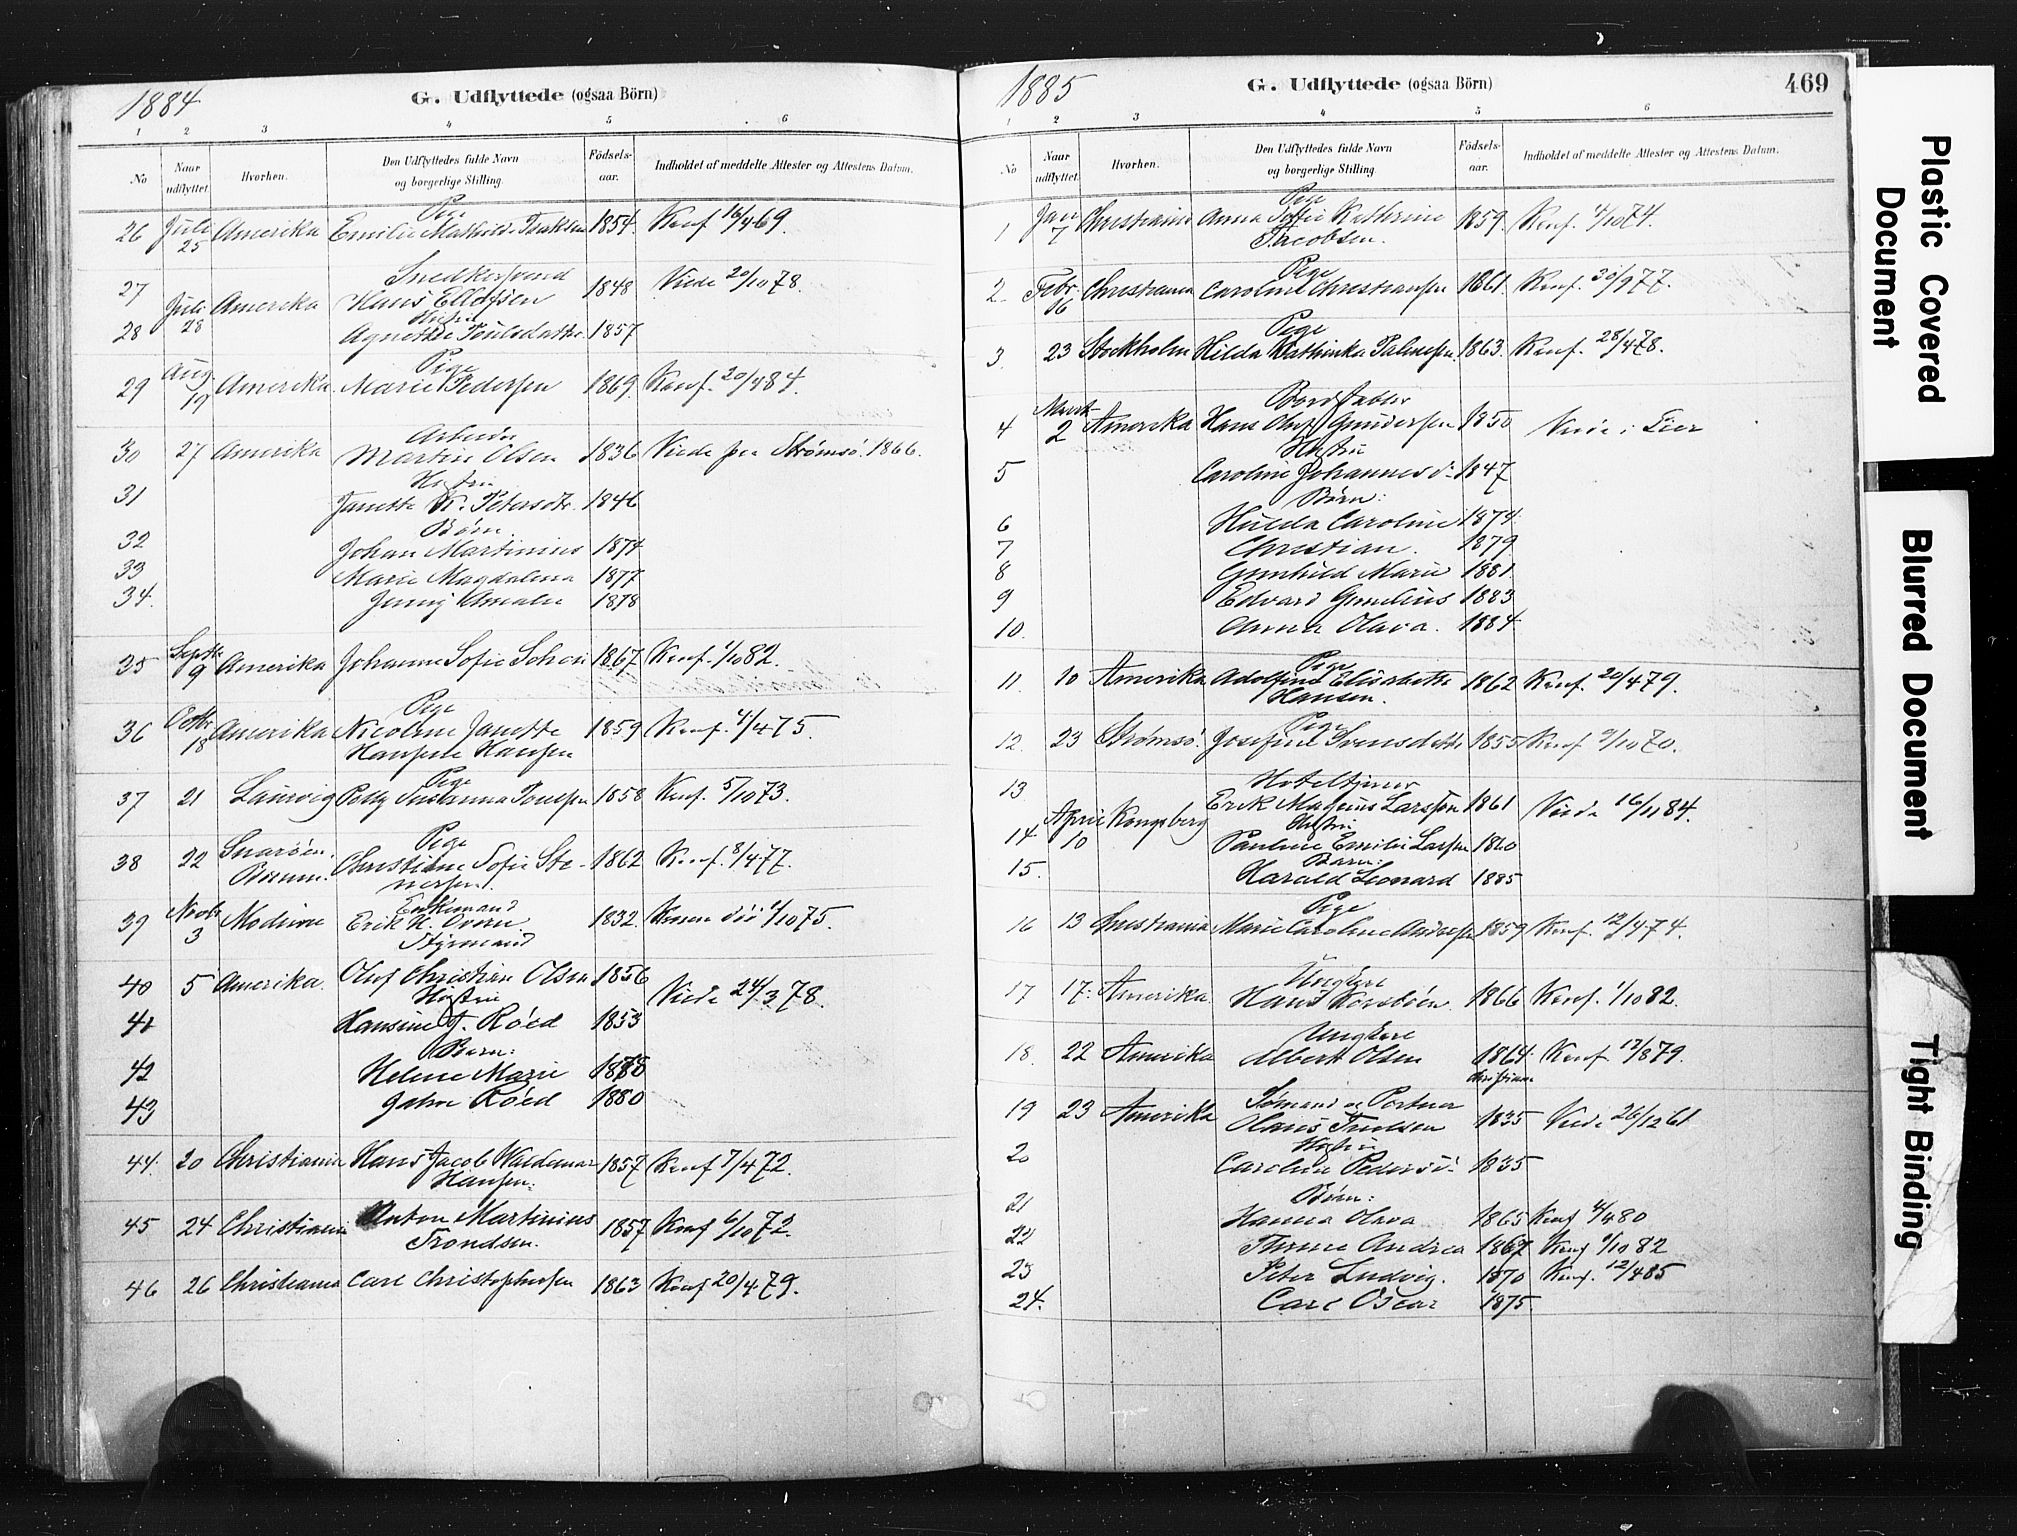 1884
G. Udflyttede (ogsaa Börn)
1 2 3 4 5 6
No
Naar udflyttet.
Hvorhen.
Den Udflyttedes fulde Navn og borgerlige Stilling.
Födsels-aar.
Indholdet af meddelte Attester og Attestens Datum.
Pige
26 Juli 25 Amerika Emilie Mathilde Isaksen 1854 Konf 16/4 69.
Snedkersvend
27 Juli 28 Amerika Hans Ellefsen 1848 Viede 20/10 78.
Hustru
28 Agnethe 1857
Pige
29 Aug 19 Amerika Marie Pedersen 1869 Konf. 20/4 84.
Arbeider
30 27 Amerika Martin Olsen 1836 Viede paa Strømsö 1866.
Hustru
31 Janette K. Petersdtr. 1846
Börn
32 Johan Martinius 1874
33 Marie Magdalena 1877
34. Jenny Amalie 1878
35 Septbr 9 Amerika Johanne Sofie 1867 Konf. 1/10 82.
Pige
36 Octbr 18 Amerika Nicoline Janette 1859 Konf. 4/4 75.
Hansine Hansen
Pige
37 21 Laurvig Polly Susanna 1858 Konf. 5/10 73.
Pige
38 22 Snaröen. Christiane Sofie Ste- 1862 Konf. 8/4 77.
Bærum. nersen.
Enkemand
39 Novbr 3 Modum Erik H. 1832. 1/10 75.
Styrmand
40 5 Amerika. Oluf Christian Olsen 1856 Viede 24/3 78.
Hustru
41 Hansine J. Röed 1853
Börn:
42 Helene Marie 1878
43 Röed 1880
44. 20 Christiania Hans Jacob Waldemar 1857 Konf 7/4 72.
Hansen.
45 24 Christiania Anton Martinius 1857 Konf 6/10 72.
Trondsen.
46 26 Christiania Carl Christophersen 1863 Konf 20/4 79.
1885
G. Udflyttede (ogsaa Börn)
469
1 2 3 4 5 6
No
Naar udflyttet.
Hvorhen.
Den Udflyttedes fulde Navn og borgerlige Stilling.
Födsels-aar.
Indholdet af meddelte Attester og Attestens Datum.
Pige
1 Jan 7 Christiania Anna Sofie Kathrine 1859. Konf. 4/10 74.
Jacobsen.
Pige
2 Febr. 16 Christiania Caroline Christiansen 1861. Konf. 30/9 77.
Pige
3 23 Stockholm Hilda Kathinka Palmesen 1863. Konf. 28/4 78.
4 Marts 2 Amerika Hans Oluf Gundersen 1850 Viede i Lier
Hustru
5 Caroline Johannesd. 1847
Börn:
6 Hulda Caroline 1874
7 Christian. 1879
8 Gunhild Marie 1881
9 Edvard 1883
10. Anna Olava. 1884
Pige
11. 10 Amerika Adolfine Elisabeth 1862 Konf. 20/4 79.
Hansen.
Pige
12. 23 Strömsö. Josefine Svensdatter 1855 Konf 2/10 70.
Hoteltjener
13 April 10 Kongsberg Erik Magnus Larssen 1861 Viede 16/11 84.
Hustru
14 Pauline Emilie Larsen 1860
Barn:
15. Harald Leonard 1885
Pige
16 13 Christiania Marie Caroline Andresen 1859 Konf. 12/4 74.
Ungkarl
17 17. Amerika. Hans 1866 Konf. 1/10 82.
Ungkarl
18. 22 Amerika Albert Olsen 1864 Konf. 12/8 79.
Christiania
Sömand og
19 23 Amerika Olaus 1835 Viede 26/12 61
Hustru
20 Caroline Pedersd. 1835
Börn:
21 Hanna Olava 1865 Konf 4/4 80
22 Andrea 1867 Konf 1/10 82
23 Peter Ludvig. 1870 Konf. 12/4 85
24. Carl Oscar 1875
Plastic Covered Document
Blurred Document
Tight Binding